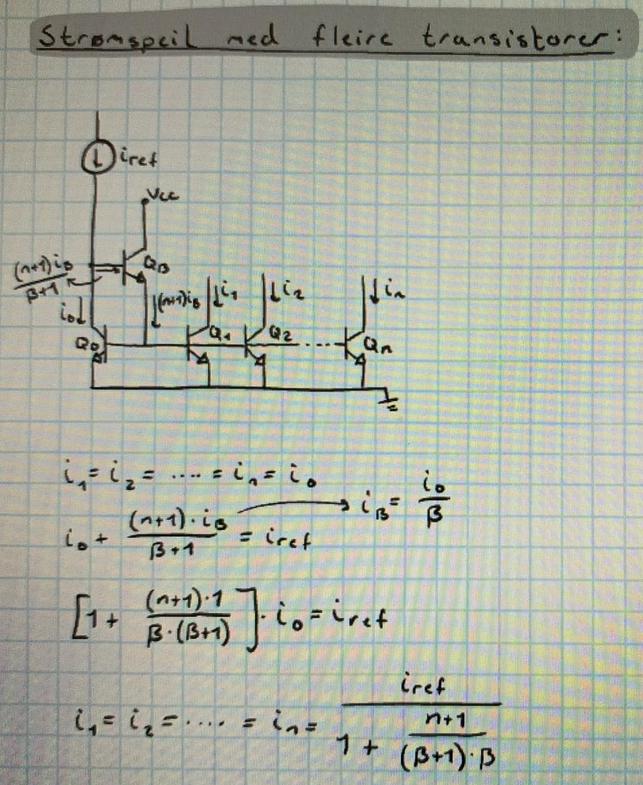 Strømspeil med fleire transistorer:
iref
Vcc
(n+1)iB / β+1
QB
i0
(n+1)iB
i1
i2
in
Q0
Q1
Q2
.....
Qn
i1 = i2 = ..... = in = i0
i0 + (n+1)·iB / β+1 = iref → iB = i0 / β
[1 + (n+1)·1 / β·(β+1)] · i0 = iref
i1 = i2 = ..... = in = iref / 1 + n+1 / (β+1)·β